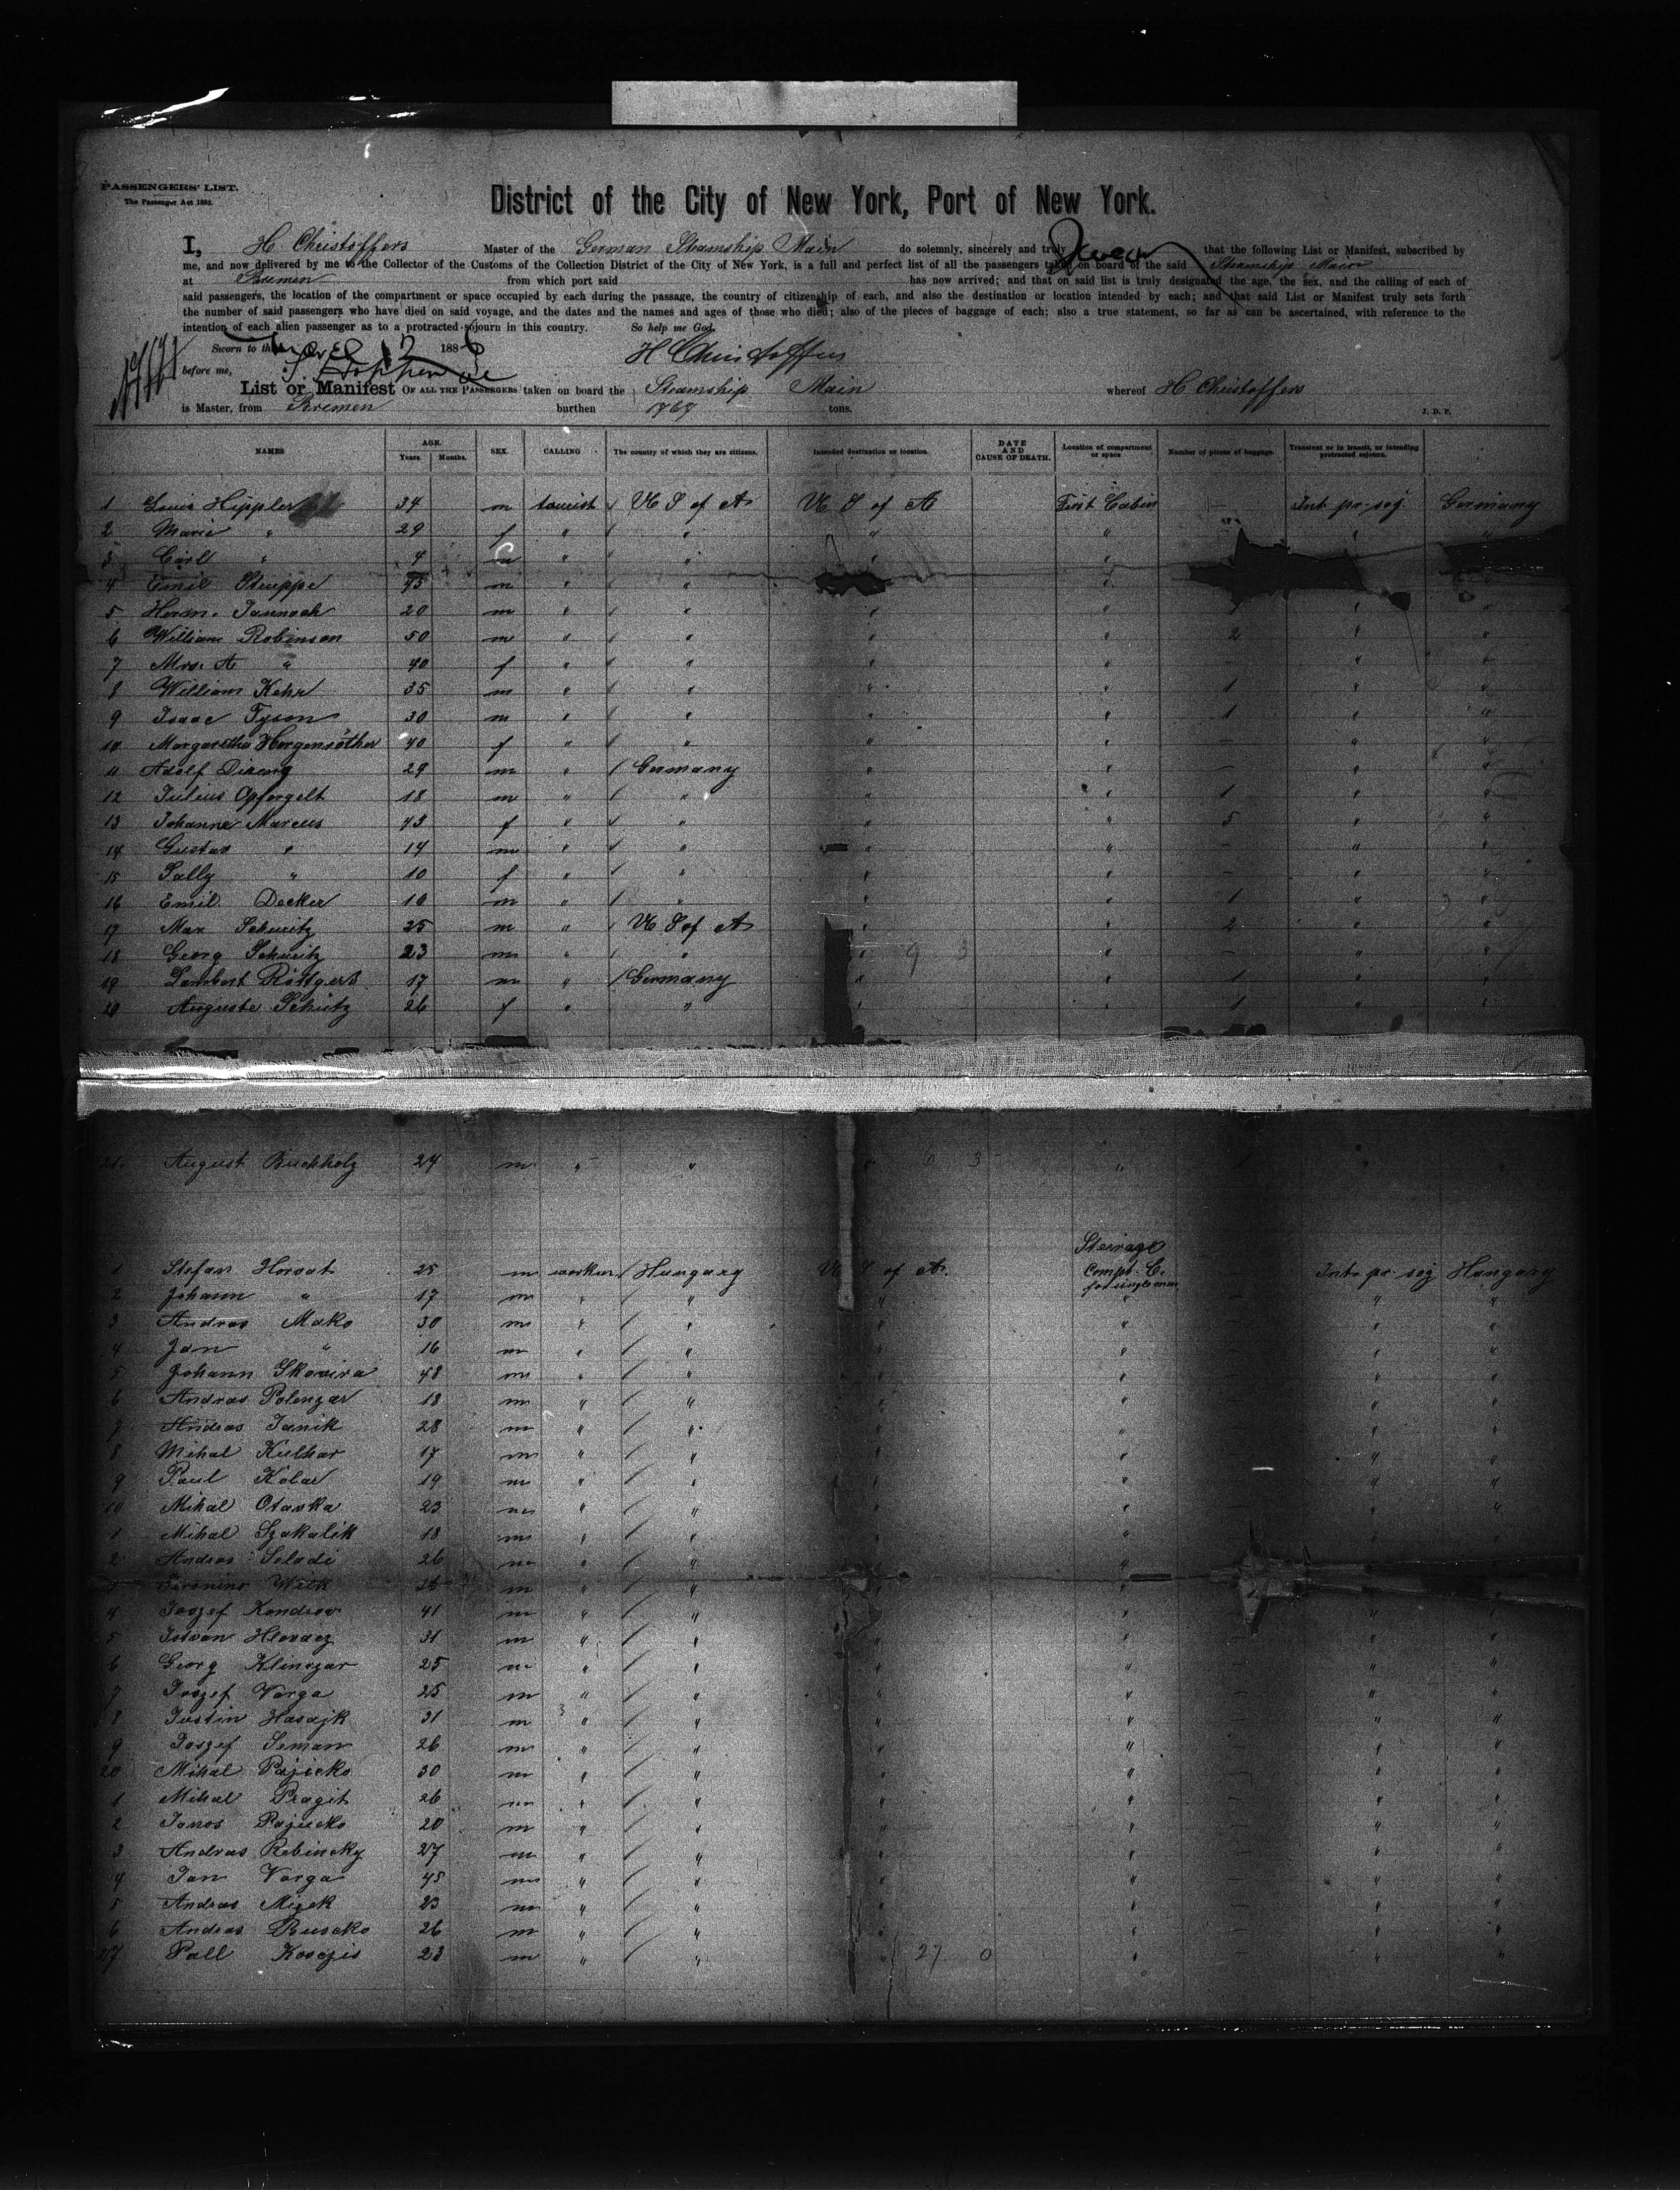 PASSENGERS' LIST.
The Passenger Act 1882.
District of the City of New York, Port of New York.
I, H Christoffers Master of the German Steamship Main do solemnly, sincerely and truly Swear that the following List or Manifest, subscribed by
me, and now delivered by me to the Collector of the Customs of the Collection District of the City of New York, is a full and perfect list of all the passengers taken on board of the said Steamship Main
at Bremen from which port said has now arrived; and that on said list is truly designated the age, the sex, and the calling of each of
said passengers, the location of the compartment or space occupied by each during the passage, the country of citizenship of each, and also the destination or location intended by each; and that said List or Manifest truly sets forth
the number of said passengers who have died on said voyage, and the dates and the names and ages of those who died; also of the pieces of baggage of each; also a true statement, so far as can be ascertained, with reference to the
intention of each alien passenger as to a protracted sojourn in this country. So help me God.
Sworn to this 12 1886 H Christoffers
before me,
List or Manifest OF ALL THE PASSENGERS taken on board the Steamship Main whereof H Christoffers
is Master, from Bremen burthen 1767 tons. J. D. P.
NAMES AGE. Years Months. SEX. CALLING The country of which they are citizens. Intended destination or location. DATE AND CAUSE OF DEATH. Location of compartment or space Number of pieces of baggage. Transient or in transit, or intending protracted sojourn.
1 Louis Hippler 34 m tourist U S of A U S of A First Cabin — Int pr soj Germany
2 Marie " 29 f " " " " " "
3 Carl " 4 m " " " "
4 Emil Stueppe 45 m " " "
5 Herm. Jannoch 20 m " " " " " "
6 William Robinson 50 m " " " " 2 " "
7 Mrs. A " 40 f " " " " — " "
8 William Kehr 35 m " " " " 1 " "
9 Isaac Tyson 30 m " " " " 1 " "
10 Margaretha Hergenröther 40 f " " " " — " "
11 Adolf Direng 29 m " Germany " " — " "
12 Julius Opfergelt 18 m " " " " 1 " "
13 Johanne Marcus 43 f " " " " 5 " "
14 Gustav " 14 m " " " " — " "
15 Sally " 10 f " " " " — " "
16 Emil Decker 16 m " " " " 1 " "
17 Max Schuritz 25 m " U S of A " " 2 " "
18 Georg Schuritz 23 m " " " 9 3 " — " "
19 Lambert Röttgers 17 m " Germany " " 1 " "
20 Auguste Schütz 26 f " " " " 1 " "
21. August Buchholz 24 m " " " 6 3 " " "
Steerage
1 Stefan Horvat 25 m workm. Hungary U S of A. Comp. C. Int pr soj Hungary
for single men
2 Johann " 17 m " " " " — " "
3 Andras Mako 30 m " " " " — " "
4 Jan " 16 m " " " " — " "
5 Johann Skovira 48 m " " " " — " "
6 Andras Polenzar 18 m " " " " — " "
7 Andras Janik 28 m " " " " — " "
8 Mihal Kulhar 17 m " " " " — " "
9 Paul Kolar 19 m " " " " — " "
10 Mihal Otavka 23 m " " " " — " "
1 Mihal Szakalik 18 m " " " " " "
2 Andras Seladi 26 m " " " " "
3 Jeronim Wilk 26 m " " " " "
4 Joszef Kondrov 41 m " " " " " "
5 Istvan Hlavacz 31 m " " " " — " "
6 Georg Klinszar 25 m " " " " — " "
7 Joszef Varga 25 m " " " " — " "
8 Justin Hasajk 31 m " " " " — " "
9 Joszef Seman 26 m " " " " — " "
20 Mihal Pajicko 30 m " " " " — " "
1 Mihal Pragit 26 m " " " " — " "
2 Janos Pajucko 20 m " " " " — " "
3 Andras Rebincky 27 m " " " " — " "
4 Jan Varga 45 m " " " " — " "
5 Andras Mizek 23 m " " " " — " "
6 Andras Buscko 26 m " " " " — " "
27 Pall Kosczis 23 m " " " 27 0 " — " "